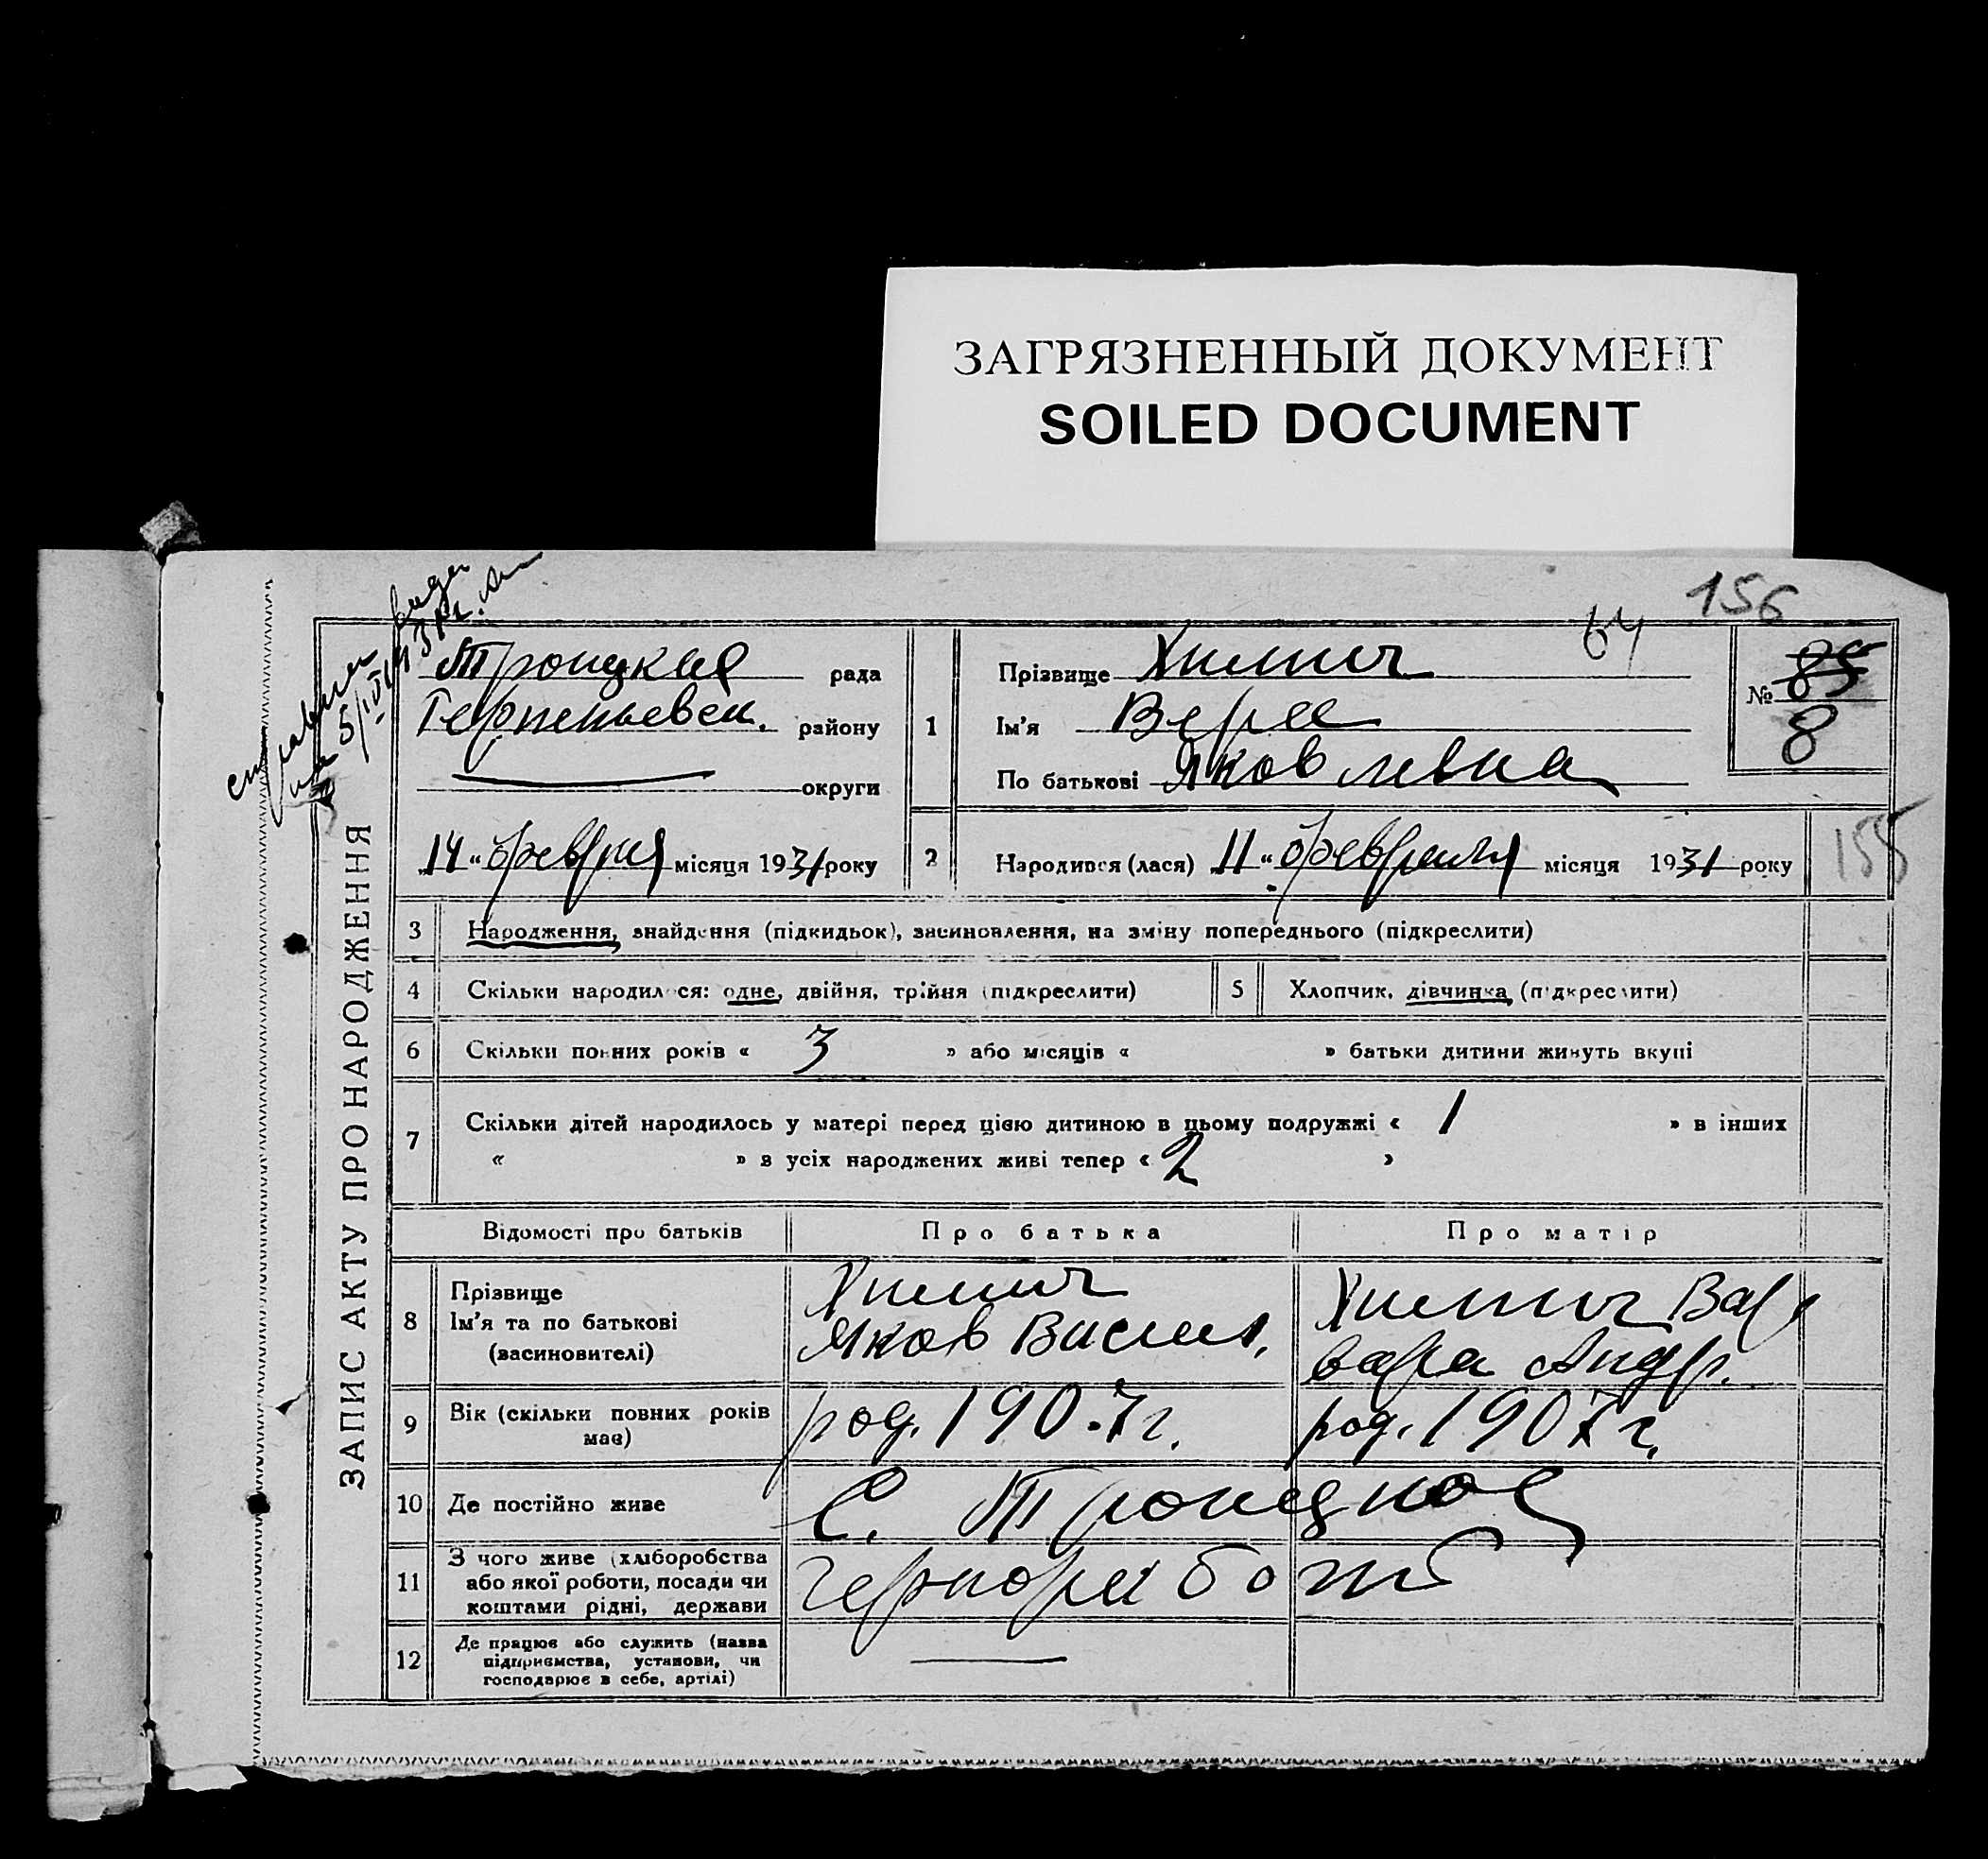 ЗАГРЯЗНЕННЫЙ ДОКУМЕНТ
SOILED DOCUMENT
156
64
ЗАПИС АКТУ ПРО НАРОДЖЕННЯ
Троицкая рада
району
округи
1
Прізвище Химич
Ім'я Вера
По батькові Яковлевна
№ 85
8
„14“ февраля місяця 1931 року
2 Народився (лася) „11“ февраля місяця 1931 року
155
3 Народження, знайдення (підкидьок), засиновлення, на зміну попереднього (підкреслити)
4 Скільки народилося: одне, двійня, трійня (підкреслити)
5 Хлопчик, дівчинка (підкреслити)
6 Скільки повних років « 3 » або місяців « » батьки дитини живуть вкупі
7 Скільки дітей народилось у матері перед цією дитиною в цьому подружжі « 1 » в інших
« » в усіх народжених живі тепер « 2 »
Відомості про батьків Про батька Про матір
8 Прізвище
Ім'я та по батькові
(васиновителі)
Химич
Яков Васил.
Химич Вар
вара Андр.
9 Вік (скільки повних років
має)
род. 1907 г. род. 1907 г.
10 Де постійно живе С. Троицкое
11 З чого живе (хліборобства
або якої роботи, посади чи
коштами рідні, держави
чернораб
12 Де працює або служить (назва
підприємства, установи, чи
господарює в себе, артілі)